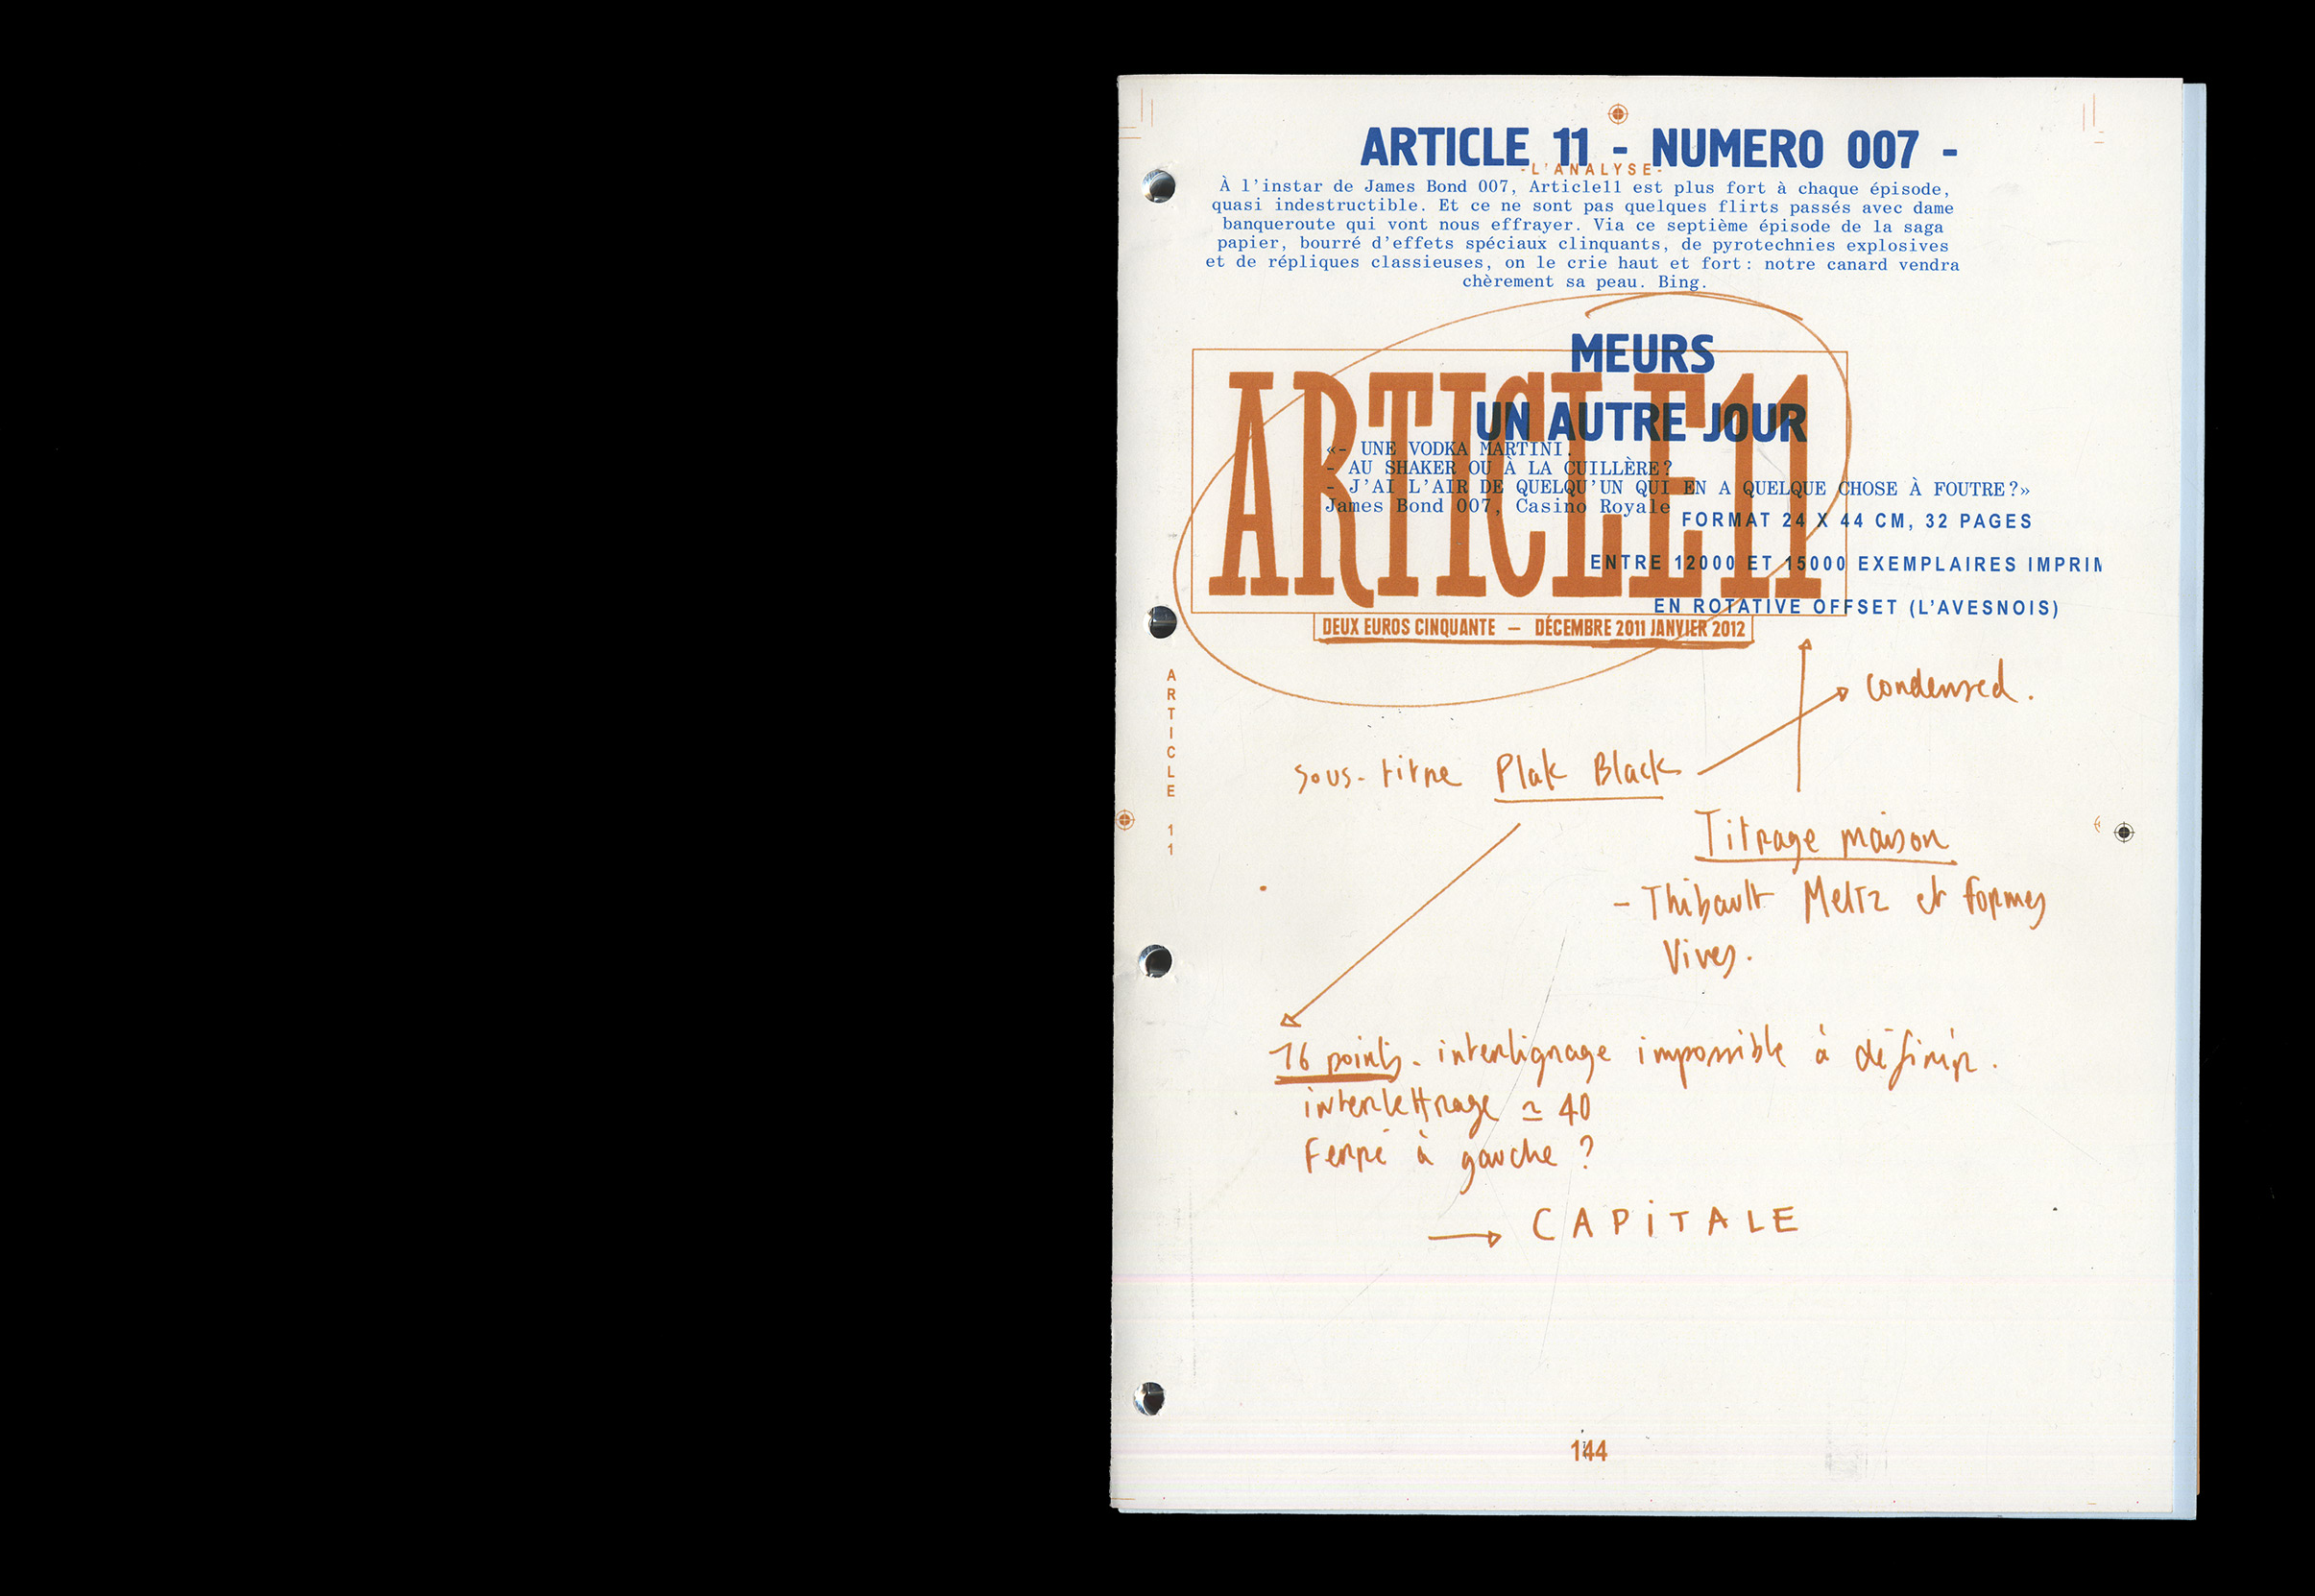 ARTICLE 11 - NUMERO 007 -
-L'ANALYSE-
À l'instar de James Bond 007, Article11 est plus fort à chaque épisode,
quasi indestructible. Et ce ne sont pas quelques flirts passés avec dame
banqueroute qui vont nous effrayer. Via ce septième épisode de la saga
papier, bourré d'effets spéciaux clinquants, de pyrotechnies explosives
et de répliques classieuses, on le crie haut et fort: notre canard vendra
chèrement sa peau. Bing.
MEURS
UN AUTRE JOUR
ARTICLE11
«- UNE VODKA MARTINI.
- AU SHAKER OU À LA CUILLÈRE?
- J'AI L'AIR DE QUELQU'UN QUI EN A QUELQUE CHOSE À FOUTRE?»
James Bond 007, Casino Royale
FORMAT 24 X 44 CM, 32 PAGES
ENTRE 12000 ET 15000 EXEMPLAIRES IMPRIM
EN ROTATIVE OFFSET (L'AVESNOIS)
DEUX EUROS CINQUANTE — DÉCEMBRE 2011 JANVIER 2012
ARTICLE 11
condensed.
sous-titre Plak Black
Titrage maison
- Thibault Meltz et formes
Vives.
16 points. interlignage impossible à définir.
interlettrage ≃ 40
Ferré à gauche ?
CAPiTALE
144